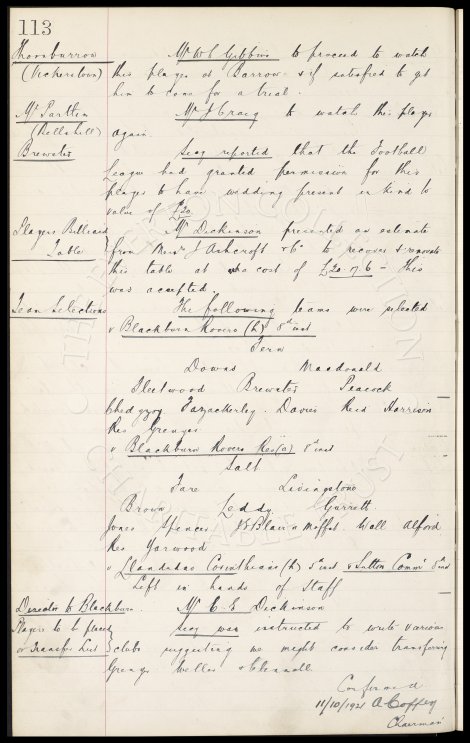 113
Thornburrow Mr W. C. Gibbins to proceed to watch
(Vickerstown) this player at Barrow & if satisfied to get
him to come for a trial.
Mr J Craig to watch this player
(Bellshill) again
Brewster Secy reported that the Football
League had granted permission for this
player to have wedding present in kind to
value of £20
Players Billiard Mr Dickinson presented an estimate
Table from Messrs J Ashcroft & Co to recover & renovate
this table at the cost of £20 17/6 – This
was accepted.
Team Selections The following teams were selected
v Blackburn Rovers (h) 8th inst
Fern
Downs Macdonald
Fleetwood Brewster Peacock
Chedgzoy Fazackerley Davies Reid Harrison
Res Grenyer
v Blackburn Rovers Res (a) 8th inst
Salt
Tare Livingstone
Brown Leddy Garrett
Jones Spencer Blair or Moffat Wall Alford
Res Yarwood
v Llandudno Corinthians (h) 5th inst & Sutton Comml 8th inst
Left in hands of Staff
Director to Blackburn Mr C. E. Dickinson
Players to be placed Secy was instructed to write various
on Transfer List clubs suggesting we might consider transferring
Grenyer Weller & Clennell.
Confirmed
11/10/1921 A Coffey
Chairman